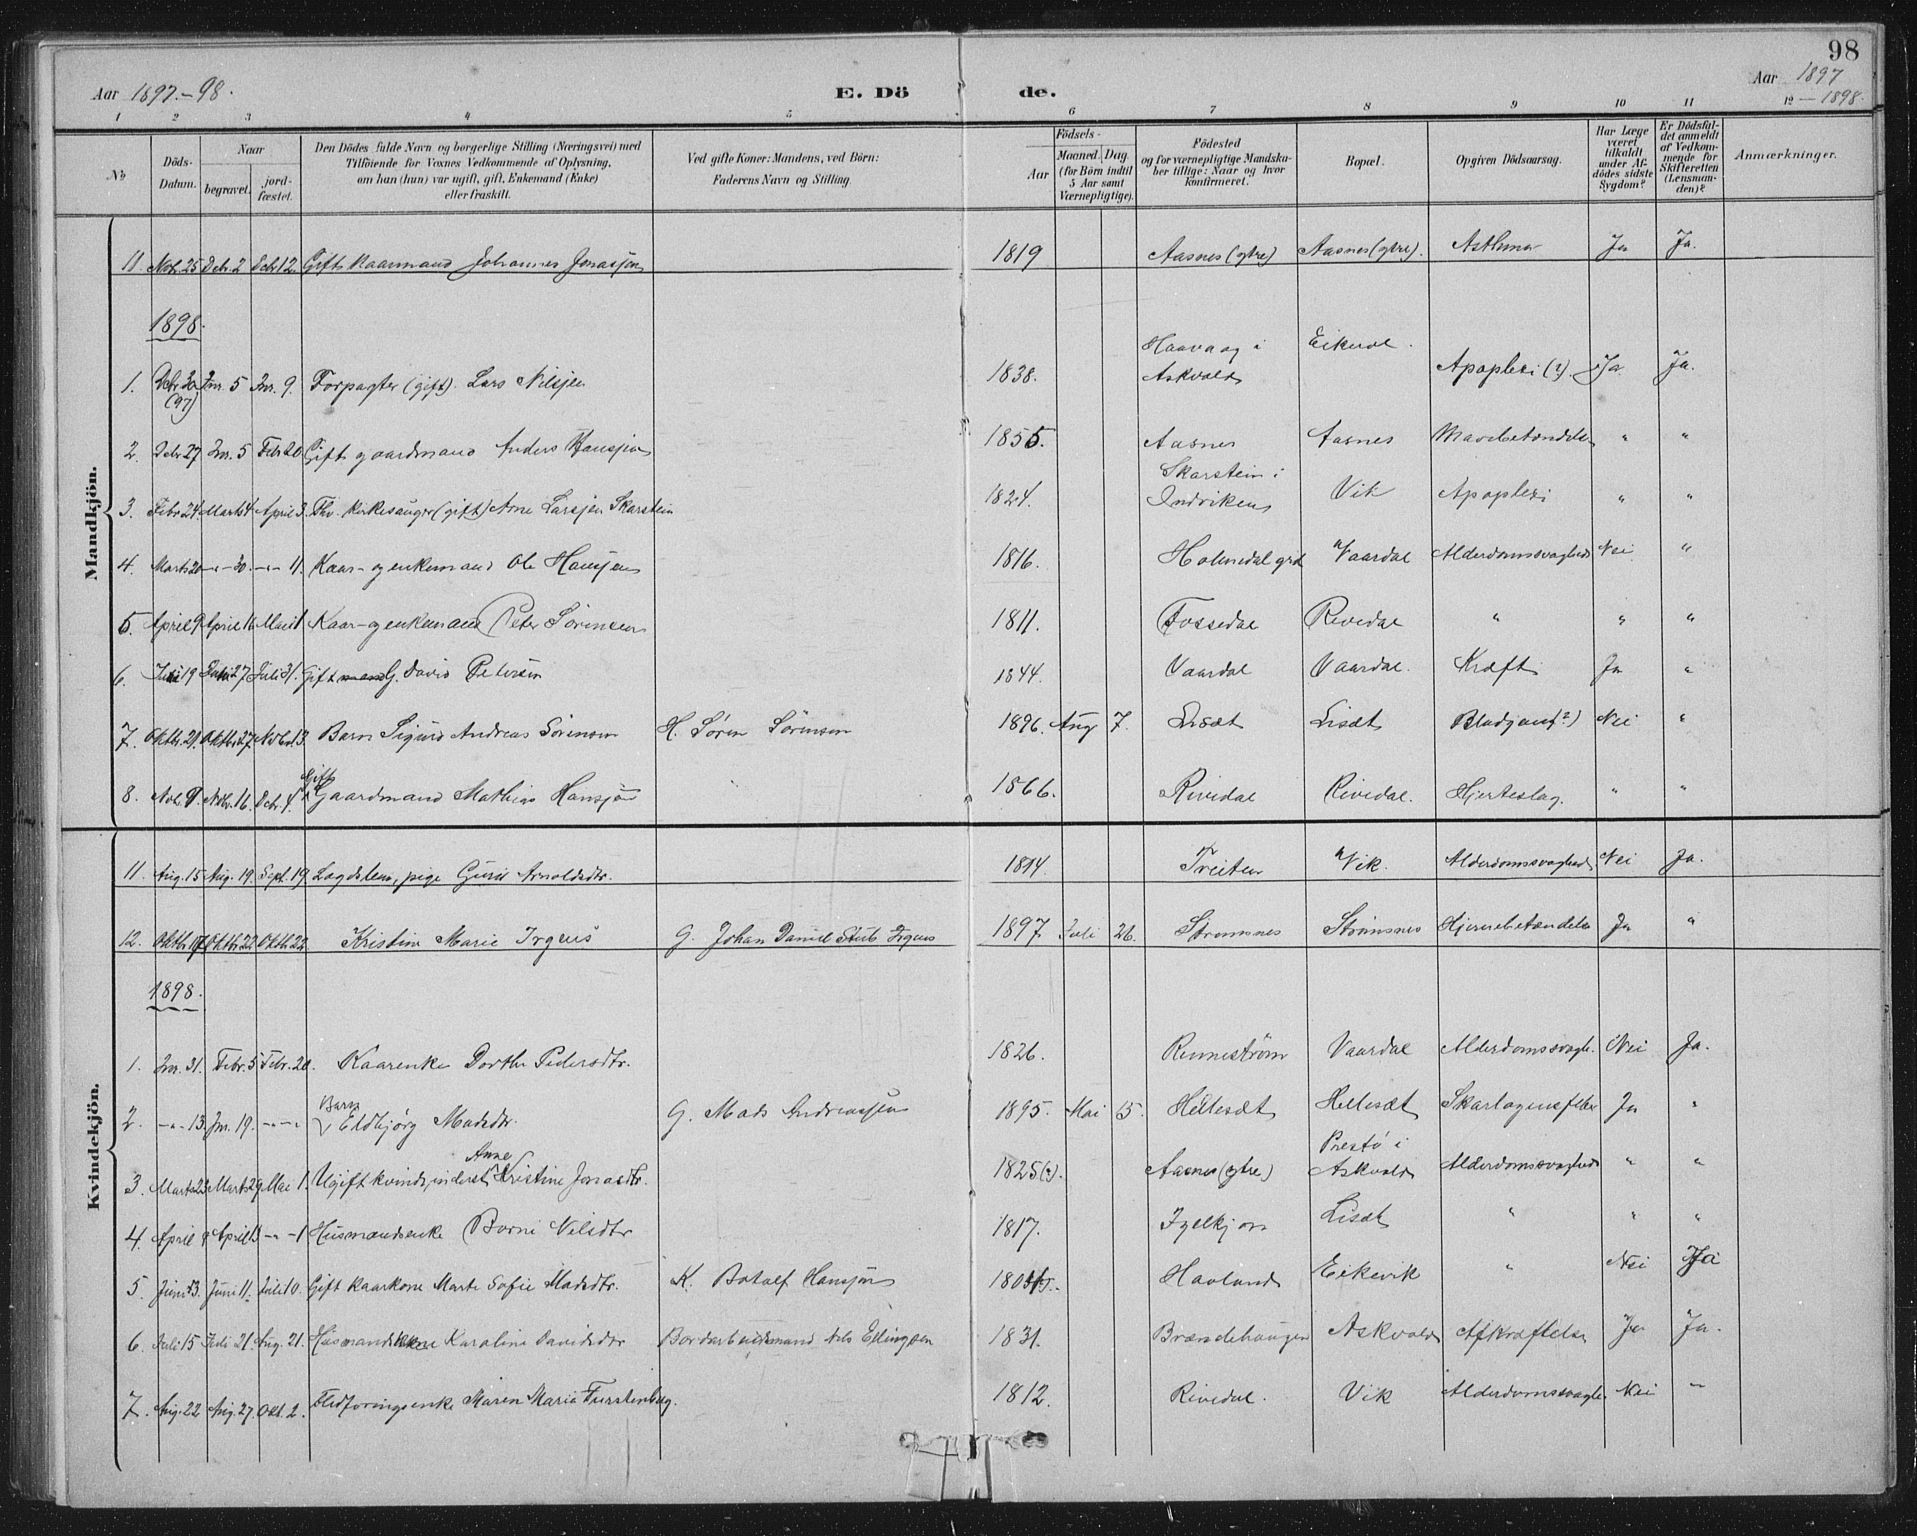 98
Aar 1897.-98.
E. Dö
de.
Aar 1897
- 1898.
1 2 3 4 5 6 7 8 9 10 11 12
No
Döds-Datum.
Naar
begravet.
jord-fæstet.
Den Dödes fulde Navn og borgerlige Stilling (Næringsvei) med
Tilföiende for Voxnes Vedkommende af Oplysning,
om han (hun) var ugift, gift, Enkemand (Enke)
eller fraskilt.
Ved gifte Koner: Mandens, ved Börn:
Faderens Navn og Stilling.
Födsels-
Aar
Maaned. Dag.
(for Börn indtil
5 Aar samt
Værnepligtige).
Födested
og for værnepligtige Mandska-
ber tillige: Naar og hvor
konfirmeret.
Bopæl.
Opgiven Dödsaarsag.
Har Læge
været
tilkaldt
under Af-
dödes sidste
Sygdom?
Er Dödsfal-
det anmeldt
af Vedkom-
mende for
Skifteretten
(Lensman-
den)?
Anmærkninger.
Mandkjön.
11. Nov. 25 Decbr. 2 Decbr. 12. Gift Kaarmand Johannes Jonassen 1819 Aasnes (ytre) Aasnes (ytre). Asthma Ja Ja.
1898.
1. Decbr. 30 (97) Jnr. 5 Jnr. 9. Forpagter (gift). Lars Nilsjen 1838. Haavaag i Askvold Eikevol. Apoplexi (?). Ja Ja.
2. Decbr. 27 Jnr. 5 Febr 20 Gift gaardmand Anders Hansjen 1855. Aasnes Aasnes Mavebetændelse " "
3. Febr. 24. Marts 4 April 3. Fhv. kirkesanger (gift) Arne Larsjen Skarstein 1824. Skarstein i Indviken Vik Apoplexi " "
4. Marts 20 -"- 30. -"- 11. Kaar- og enkemand Ole Hansjen 1816. Holmedal grd Vaardal Alderdomssvaghed Nei "
5. April 9 April 16 Mai 1 Kaar- og enkemand Peter Sørensen 1811. Fossedal Rivedal " " "
6. Juli 19 Juli 27 Juli 31. Gift G. David Petersen 1844. Vaardal Vaardal. Kræft Ja "
7. Oktbr. 21. Oktbr. 27. Novbr. 13. Barn Sigurd Andreas Sørensen H. Søren Sørensen 1896. Aug 7. Lisæt Lisæt Blodgang (?) Nei "
8. Novbr. 9. Novbr. 16. Decbr. 4. Gift Gaardmand Mathias Hansjøn 1866. Rivedal Rivedal. Hjerteslag. " "
Kvindekjön.
11. Aug. 15 Aug. 19. Sept. 19. Lægdslem, pige Guri Arnoldsdtr. 1814. Treiten Vik. Alderdomssvaghed Nei Ja.
12. Oktbr. 17 Oktbr. 22 Oktbr. 22. Kristine Marie Irgens G. Johan Daniel Stub Irgens 1897 Juli 26. Strømsnes Strømsnes Hjernebetændelse Ja "
1898.
1. Jnr. 31. Febr. 5 Febr. 20. Kaarenke Dorthe Pedersdtr. 1826. Rennestrøm Vaardal Alderdomssvagh. Nei Ja.
2. -"- 13. Jnr. 19. -"-"- Barn Eldbjørg Madsdtr. G. Mads Andreassen 1895. Mai 15. Hellesæt Hellesæt Skarlagensfeber Ja "
3. Marts 23 Marts 29 Mai 1. Ugift kvinde, inderst Anne Kristine Jonasdtr. 1825 (?). Aasnes (ytre) Prestø i Askvold Alderdomssvaghed " "
4. April 9 April 13 -"- 1 Husmandsenke Borni Nilsdtr 1817. Igelkjøn Lisæt " " "
5. Juni 3. Juni 11. Juli 10. Gift kaarkone Marte Sofie Madsdtr. K. Botolf Hansjøn Havland Eikevik " Nei Ja
6. Juli 15 Juli 21. Aug. 21. Husmandskone Karoline Davidsdtr Bordarbeidsmand Nils Ellingsen 1831. Brændehaugen Askvold Afkræftelse Ja Ja.
7. Aug. 22 Aug. 27. Okt. 2. Fledføringsenke Maren Maria Furstenborg. 1812. Rivedal. Vik Alderdomssvagh. Nei "